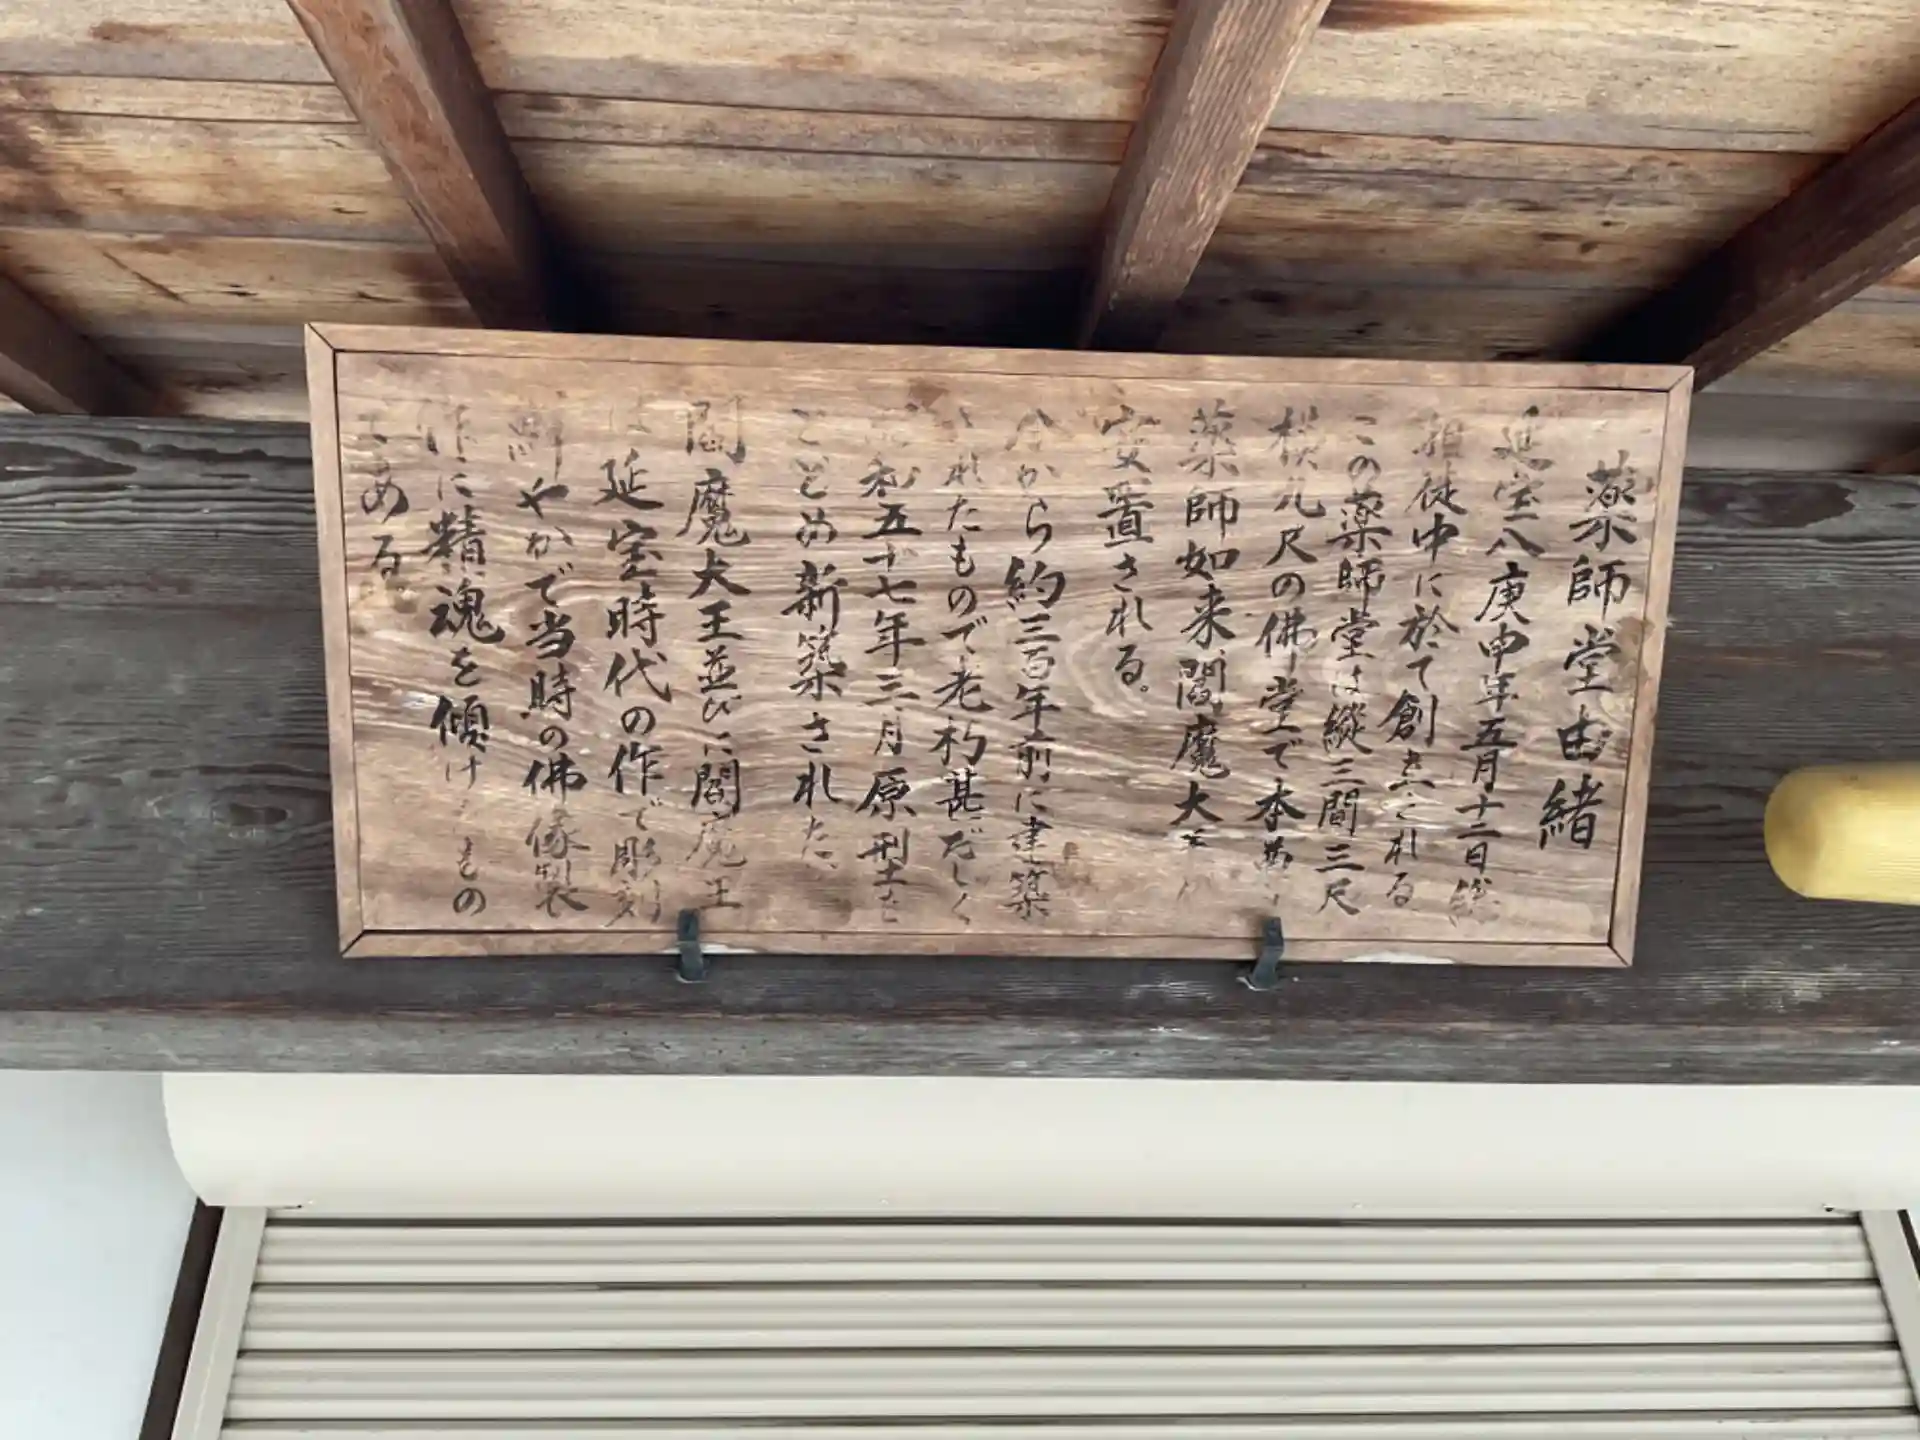 薬師堂由緒
延宝八庚申年五月十二日総
檀徒中に於て創立される
この薬師堂は縦三間三尺
横九尺の佛堂で本尊
薬師如来閻魔大王が
安置される。
今から約三百年前に建築
されたもので老朽甚だしく
昭和五十七年三月原型を
とどめ新築された、
閻魔大王並びに閻魔王
は延宝時代の作で彫刻
鮮やかで当時の佛像製
作に精魂を傾けたもの
である